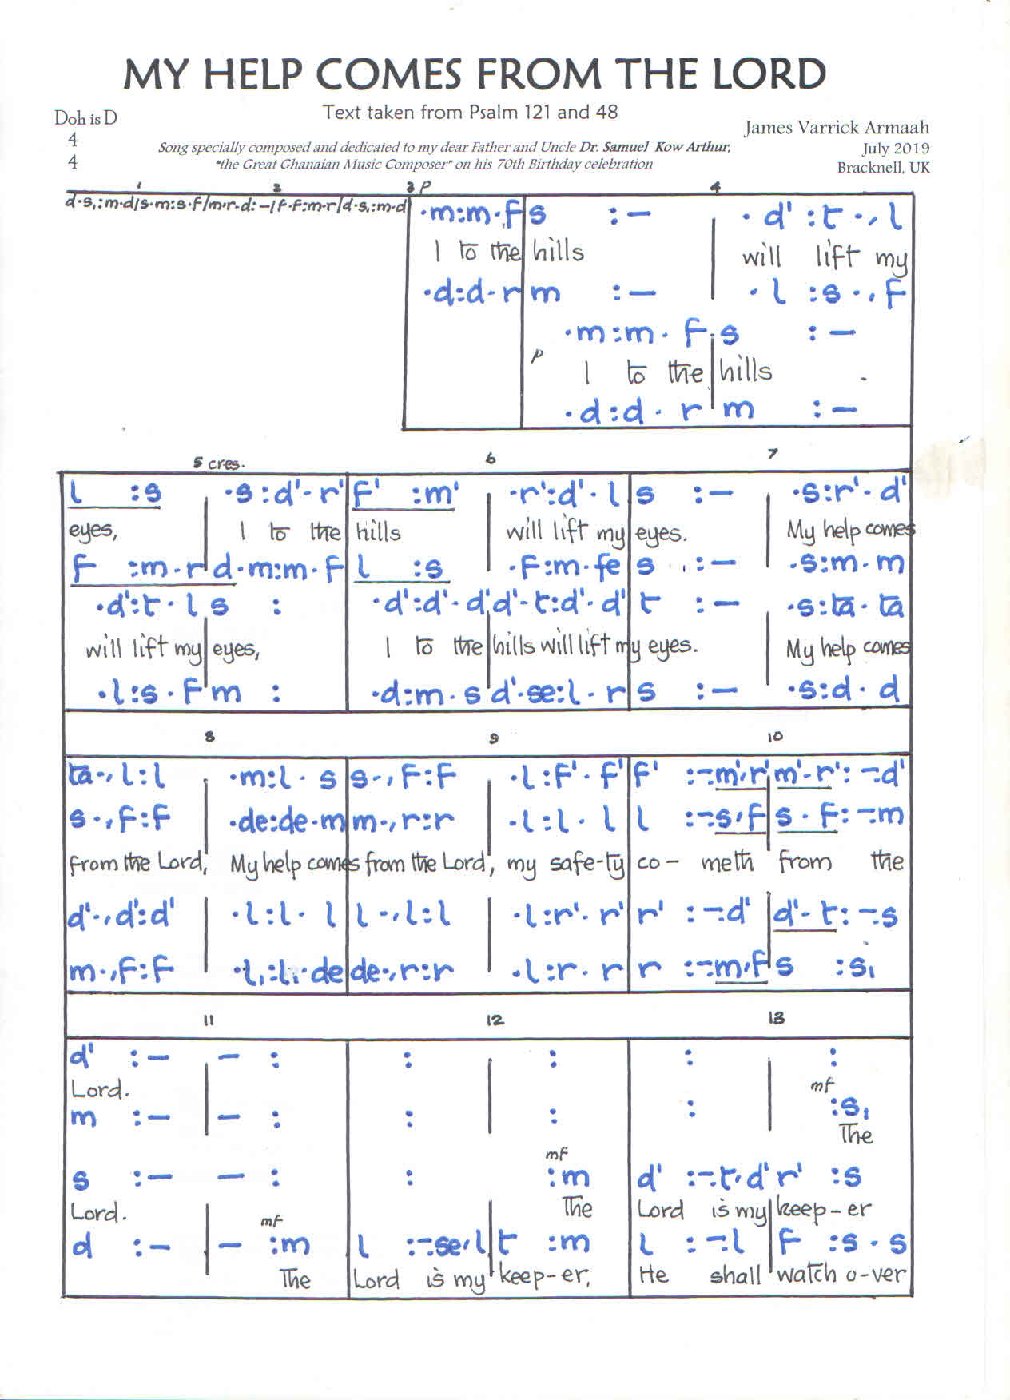 MY HELP COMES FROM THE LORD
Text taken from Psalm 121 and 48
Doh is D
4
4
James Varrick Armaah
July 2019
Bracknell, UK
Song specially composed and dedicated to my dear Father and Uncle Dr. Samuel Kow Arthur,
"the Great Ghanaian Music Composer" on his 70th Birthday celebration
1 2 3 P 4
d·s,:m·d/s·m:s·f/m·r·d:-/f·f:m·r/d·s,:m·d
·m:m·f s :— | ·d' :t·,l
I to the hills will lift my
·d:d·r m :— | ·l :s·,f
·m:m·f s :—
P
I to the hills
·d:d·r m :—
5 cres. 6 7
l :s | ·s:d'·r' f' :m' | ·r':d'·l s :— | ·s:r'·d'
eyes, I to the hills will lift my eyes. My help comes
f :m·r d·m:m·f l :s | ·f:m·fe s :— | ·s:m·m
·d':t·l s : ·d':d'·d' d'·t:d'·d' t :— | ·s:ta·ta
will lift my eyes, I to the hills will lift my eyes. My help comes
·l:s·f m : ·d:m·s d'·se:l·r s :— | ·s:d·d
8 9 10
ta·,l:l | ·m:l·s s·,f:f | ·l:f'·f' f' :-·m',r' m'·r':-·d'
s·,f:f | ·de:de·m m·,r:r | ·l:l·l l :-·s,f s·f:-·m
from the Lord, My help comes from the Lord, my safe-ty co- meth from the
d'·,d':d' | ·l:l·l l·,l:l | ·l:r'·r' r' :-·d' d'·t:-·s
m·,f:f | ·l,:l,·de de·,r:r | ·l:r·r r :-·m,f s :s,
11 12 13
d' :— | — : : | : : | :
Lord. mf
m :— | — : : | : : | :s,
The
mf
s :— — : : :m d' :-·t,d' r' :s
Lord. The Lord is my keep-er
mf
d :— | — :m l :-·se,l t :m l :-·l f :s·s
The Lord is my keep-er, He shall watch o-ver